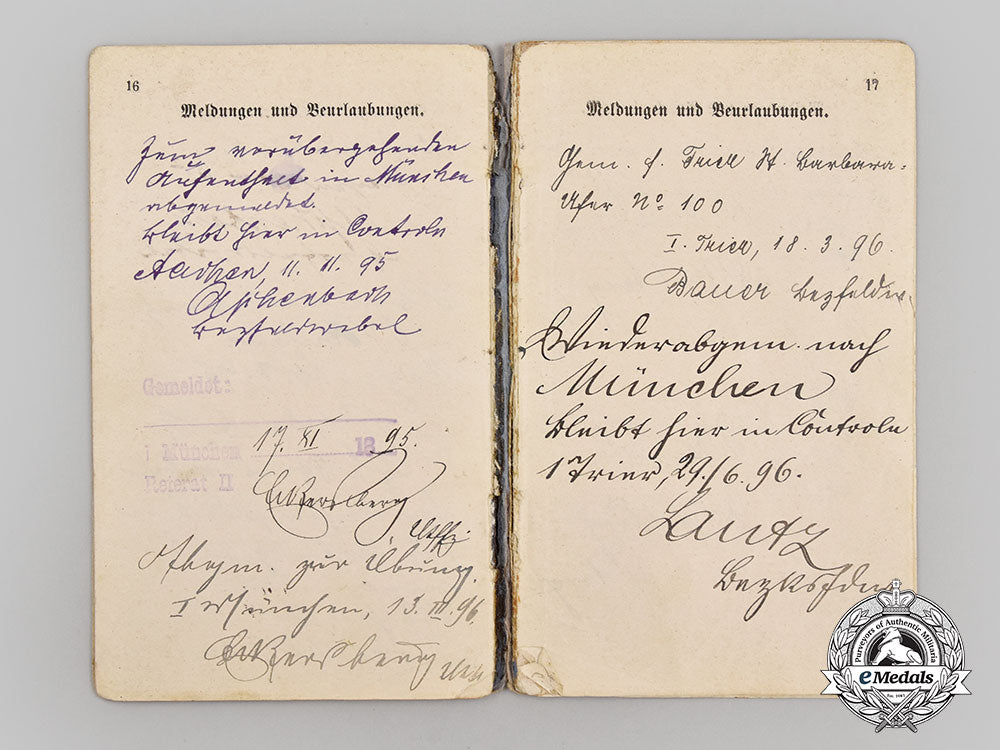 16
Meldungen und Beurlaubungen.
Zum vorübergehenden
Aufenthalt in München
abgemeldet.
Bleibt hier in Controle
Aachen, 11. 11. 95
Bezfeldwebel
Gemeldet:
i München 17. XI 1895.
Referat II
Abgem. zur Übung.
I München, 13. III 96
17
Meldungen und Beurlaubungen.
Gem. f. Trier St. Barbara-
Ufer No. 100
I. Trier, 18. 3. 96.
Bauer Bezfeldw.
Wiederabgem. nach
München
bleibt hier in Controle
1 Trier, 29./6. 96.
Lautz
Purveyors of Authentic Militaria
eMedals